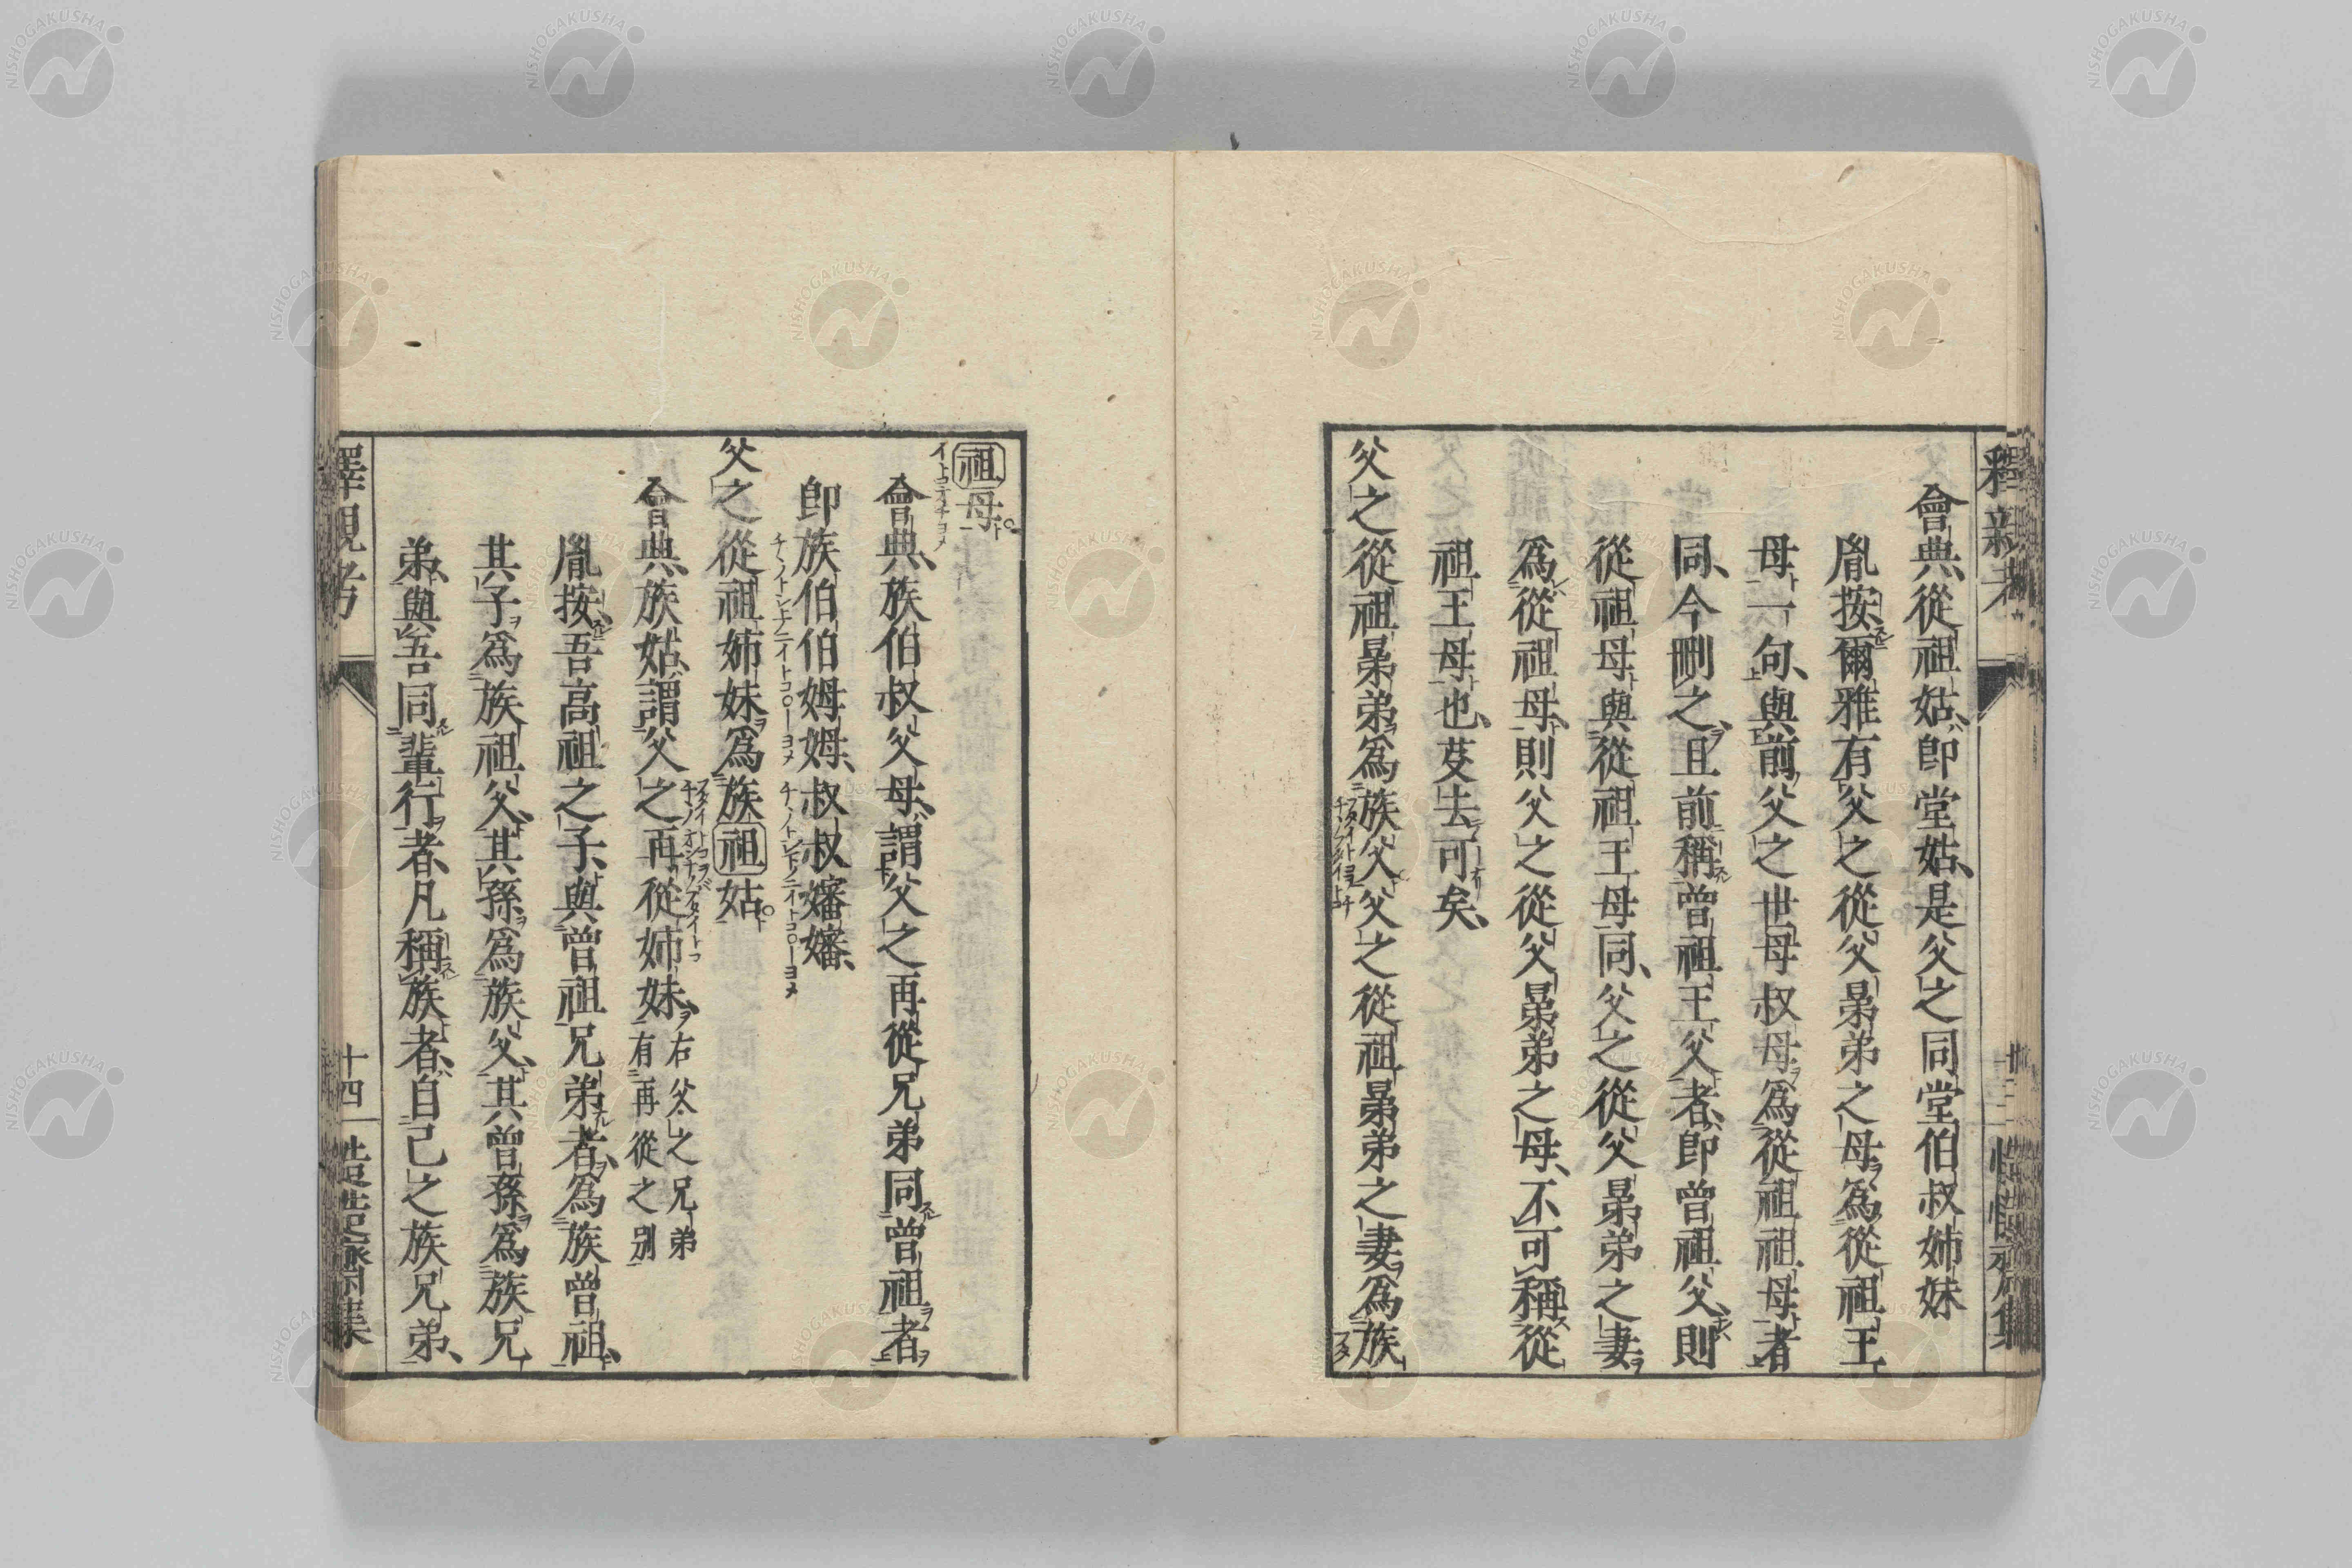 會典、從祖姑、卽堂姑、是父之同堂伯叔姉妹
胤按爾雅有父之從父晜弟之母爲從祖王
母一句、與前父之世母叔母爲從祖祖母者
同、今刪之、且前稱曾祖王父者、卽曾祖父、則
從祖母與從祖王母同、父之從父晜弟之妻
爲從祖母、則父之從父晜弟之母、不可稱從
祖王母也、芟去可矣、
父之從祖晜弟爲族父父之從祖晜弟之妻爲族
祖母
會典、族伯叔父母、謂父之再從兄弟同曾祖者
卽族伯伯姆姆、叔叔嬸嬸、
父之從祖姉妹爲族祖姑
會典、族姑、謂父之再從姉妹、右父之兄弟
有再從之別
胤按、吾高祖之子、與曾祖兄弟者、爲族曾祖、
其子爲族祖父、其孫爲族父、其曾孫爲族兄
弟、與吾同輩行者、凡稱族者、自己之族兄弟、
釋親考
十四
NISHOGAKUSHA